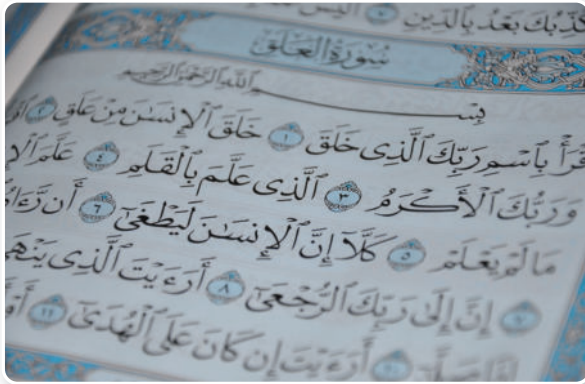 بَعْدُ بِٱلدِّينِ ٧ أَلَيْسَ
سُورَةُ العَلَقِ
بِسْمِ ٱللَّهِ ٱلرَّحْمَٰنِ ٱلرَّحِيمِ
بِٱسْمِ رَبِّكَ ٱلَّذِى خَلَقَ ١ خَلَقَ ٱلْإِنسَٰنَ مِنْ عَلَقٍ ٢
وَرَبُّكَ ٱلْأَكْرَمُ ٣ ٱلَّذِى عَلَّمَ بِٱلْقَلَمِ ٤ عَلَّمَ
مَا لَمْ يَعْلَمْ ٥ كَلَّآ إِنَّ ٱلْإِنسَٰنَ لَيَطْغَىٰٓ ٦ أَن
٧ إِنَّ إِلَىٰ رَبِّكَ ٱلرُّجْعَىٰٓ ٨ أَرَءَيْتَ ٱلَّذِى
١٠ أَرَءَيْتَ إِن كَانَ عَلَى ٱلْهُدَىٰٓ ١١